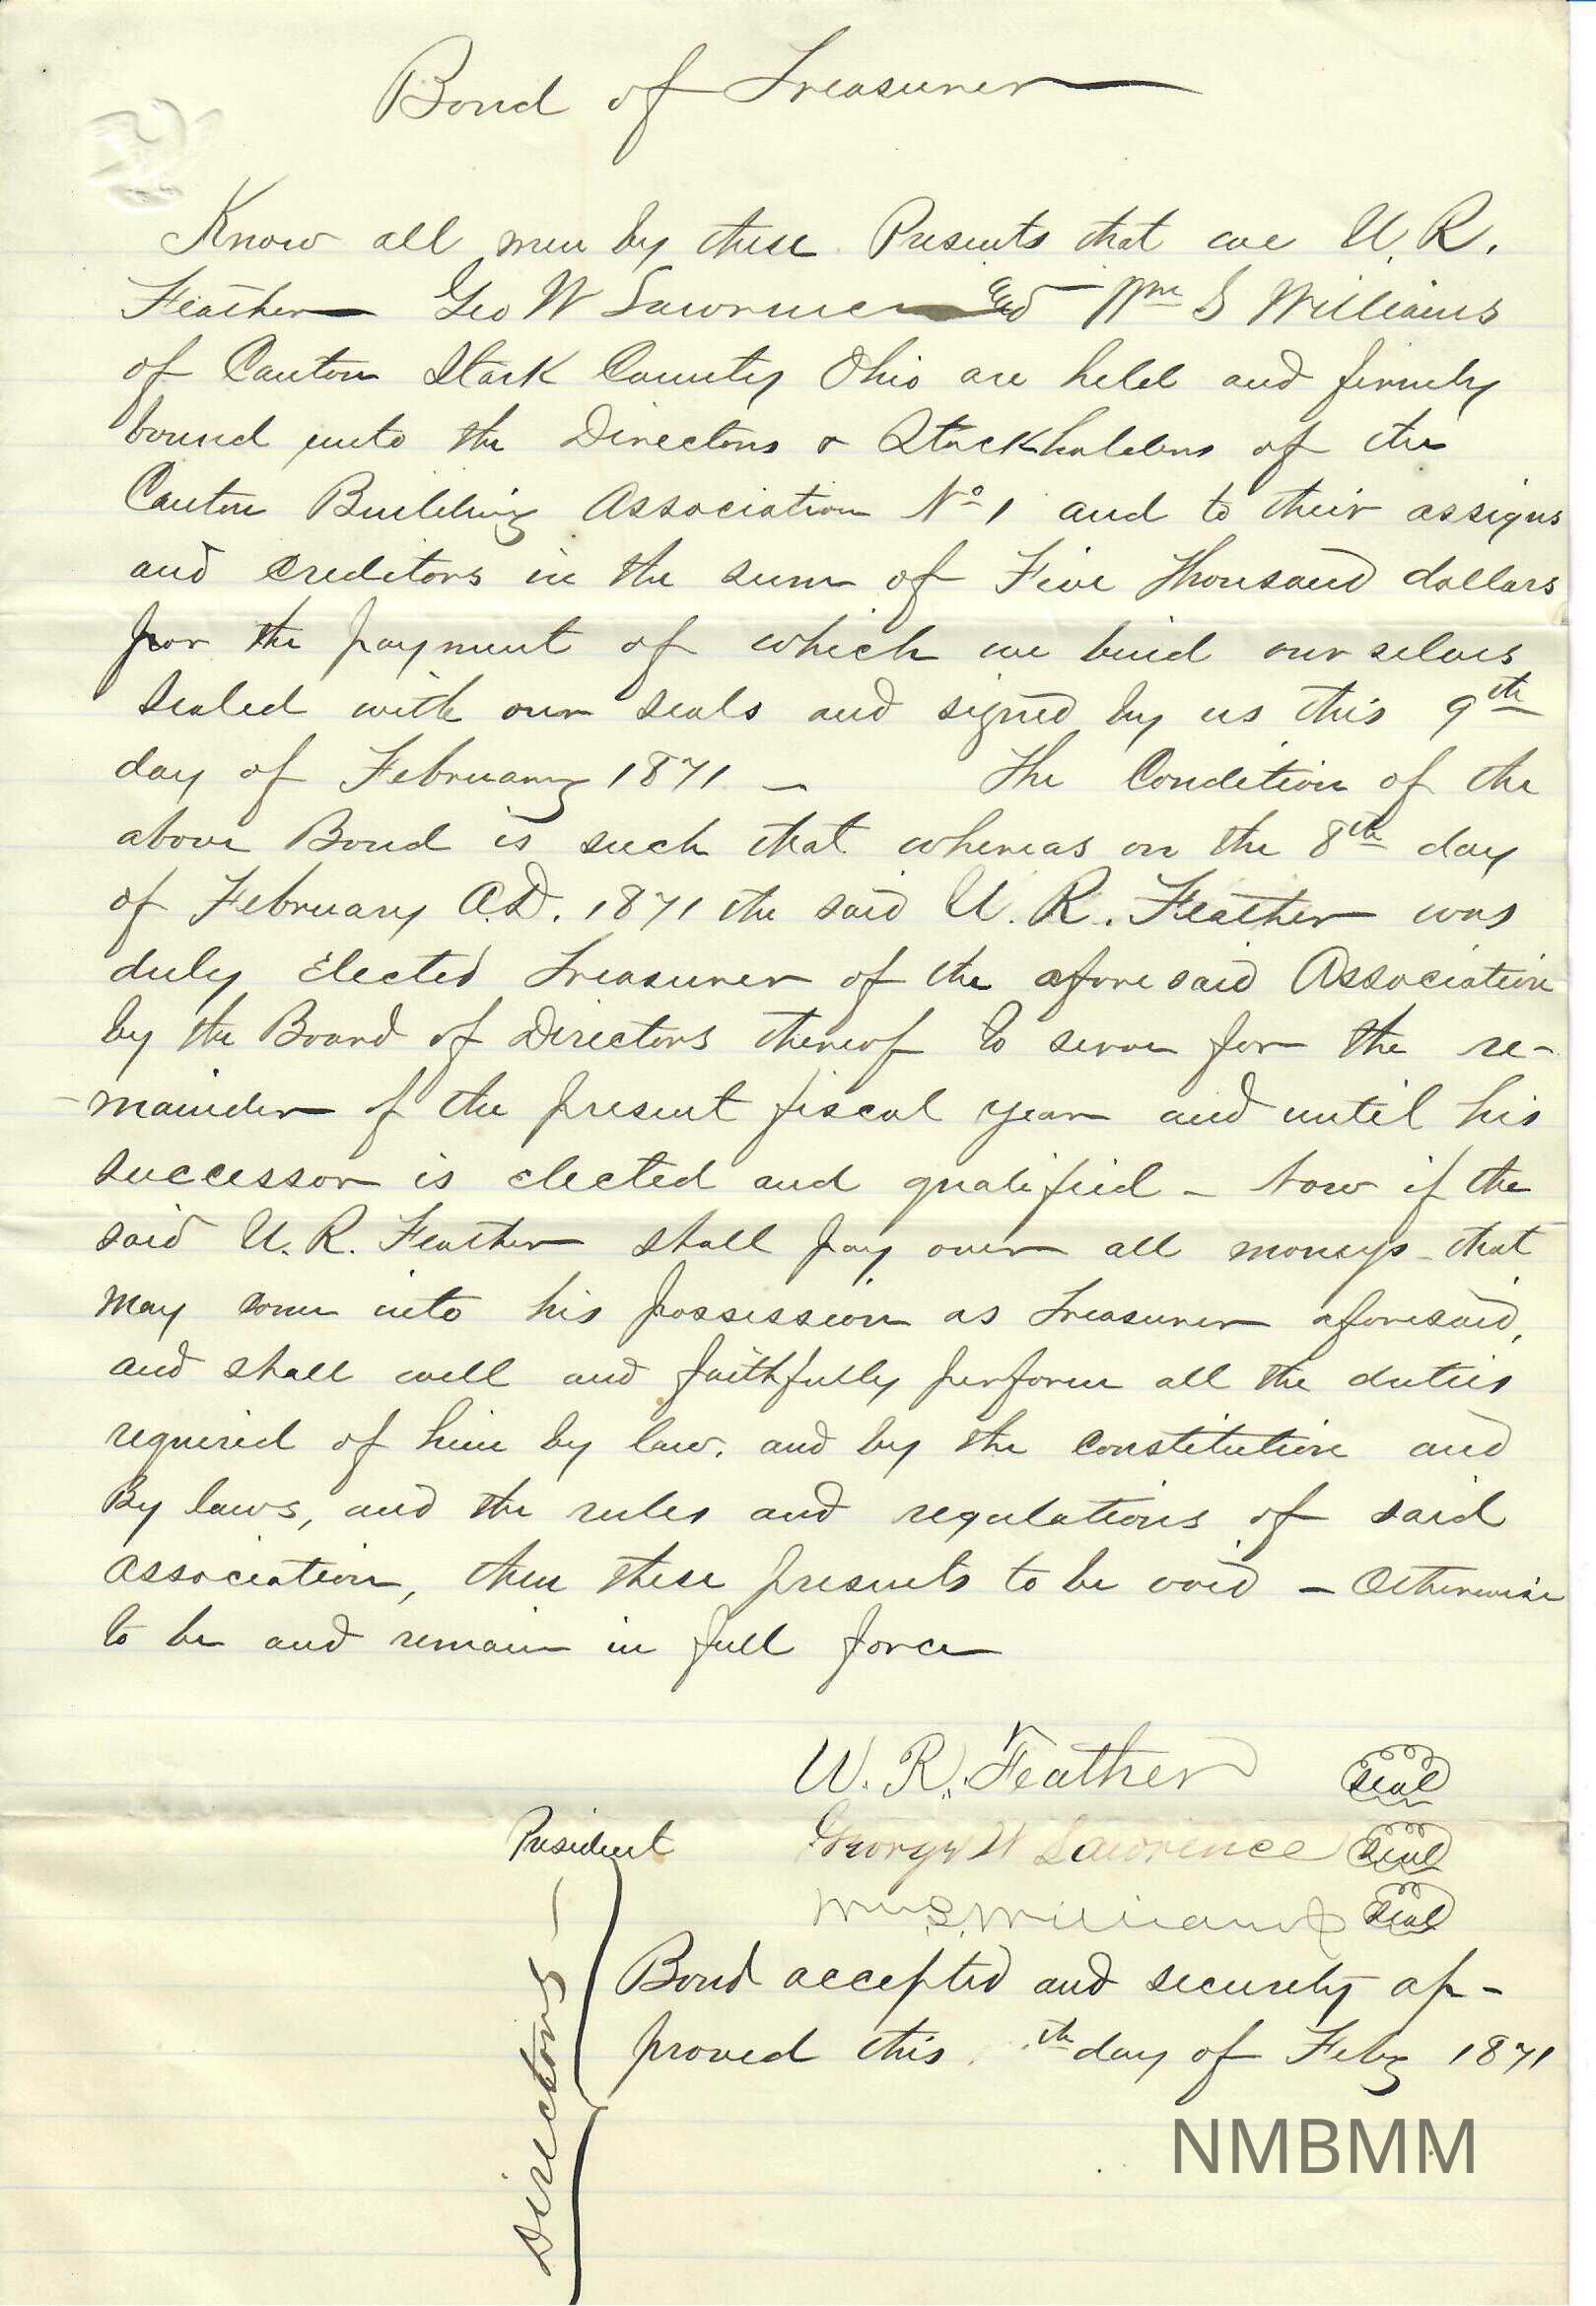 Bond of Treasurer
Know all men by these Presents that we U. R.
Feather Geo W Lawrence and Wm S Williams
of Canton Stark County Ohio are held and firmly
bound unto the Directors & Stockholders of the
Canton Building Association No 1 and to their assigns
and creditors in the sum of Five Thousand dollars
for the payment of which we bind our selves
sealed with our seals and signed by us this 9th
day of February 1871 — The Condition of the
above Bond is such that whereas on the 8th day
of February A.D. 1871 the said U. R. Feather was
duly Elected Treasurer of the afore said Association
by the Board of Directors thereof to serve for the re-
-mainder of the present fiscal year and until his
successor is elected and qualified — Now if the
said U. R. Feather shall pay over all moneys that
may come into his possession as Treasurer aforesaid,
and shall well and faithfully perform all the duties
required of him by law. and by the constitution and
By laws, and the rules and regulations of said
Association, then these presents to be void — Otherwise
to be and remain in full force
U. R. Feather seal
President George W Lawrence seal
Wm S. Williams seal
Directors
Bond accepted and security ap-
proved this th day of Feby 1871
NMBMM